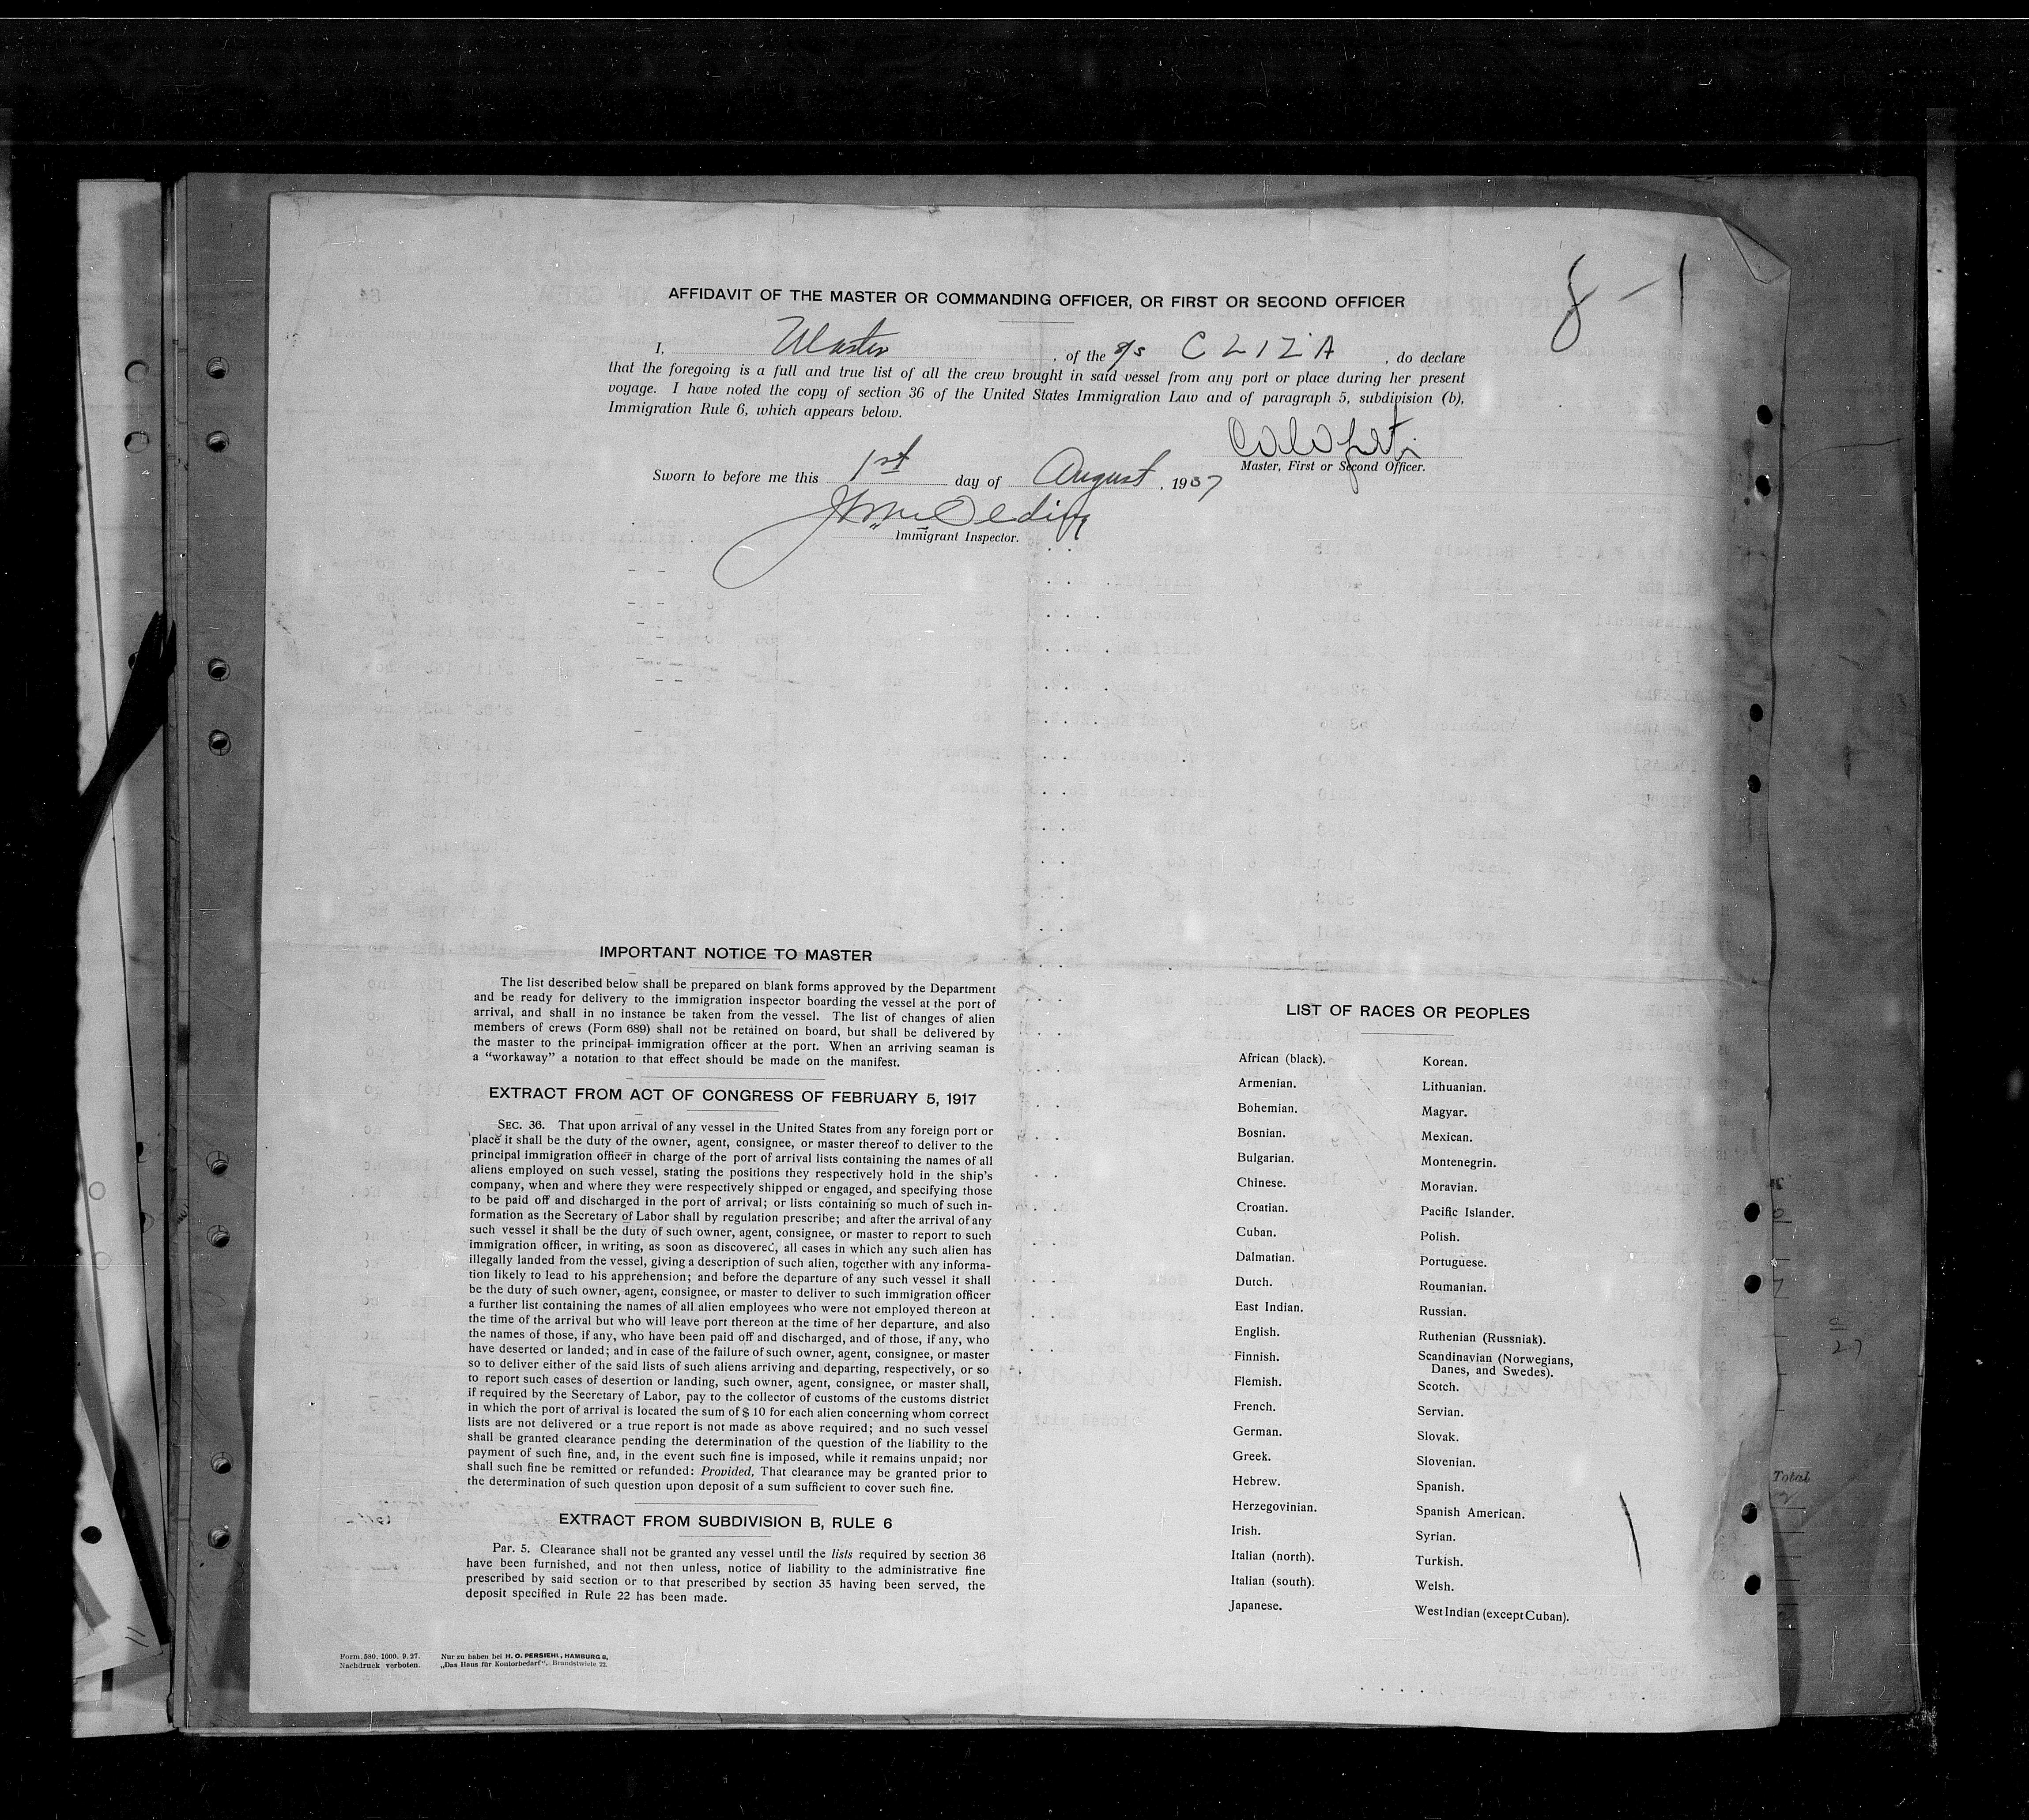 8-1
AFFIDAVIT OF THE MASTER OR COMMANDING OFFICER, OR FIRST OR SECOND OFFICER
I, Master, of the s/s CLIZIA, do declare
that the foregoing is a full and true list of all the crew brought in said vessel from any port or place during her present
voyage. I have noted the copy of section 36 of the United States Immigration Law and of paragraph 5, subdivision (b),
Immigration Rule 6, which appears below.
Master, First or Second Officer.
Sworn to before me this 1st day of August, 1937
Immigrant Inspector.
IMPORTANT NOTICE TO MASTER
The list described below shall be prepared on blank forms approved by the Department
and be ready for delivery to the immigration inspector boarding the vessel at the port of
arrival, and shall in no instance be taken from the vessel. The list of changes of alien
members of crews (Form 689) shall not be retained on board, but shall be delivered by
the master to the principal immigration officer at the port. When an arriving seaman is
a "workaway" a notation to that effect should be made on the manifest.
EXTRACT FROM ACT OF CONGRESS OF FEBRUARY 5, 1917
SEC. 36. That upon arrival of any vessel in the United States from any foreign port or
place it shall be the duty of the owner, agent, consignee, or master thereof to deliver to the
principal immigration officer in charge of the port of arrival lists containing the names of all
aliens employed on such vessel, stating the positions they respectively hold in the ship's
company, when and where they were respectively shipped or engaged, and specifying those
to be paid off and discharged in the port of arrival; or lists containing so much of such in-
formation as the Secretary of Labor shall by regulation prescribe; and after the arrival of any
such vessel it shall be the duty of such owner, agent, consignee, or master to report to such
immigration officer, in writing, as soon as discovered, all cases in which any such alien has
illegally landed from the vessel, giving a description of such alien, together with any informa-
tion likely to lead to his apprehension; and before the departure of any such vessel it shall
be the duty of such owner, agent, consignee, or master to deliver to such immigration officer
a further list containing the names of all alien employees who were not employed thereon at
the time of the arrival but who will leave port thereon at the time of her departure, and also
the names of those, if any, who have been paid off and discharged, and of those, if any, who
have deserted or landed; and in case of the failure of such owner, agent, consignee, or master
so to deliver either of the said lists of such aliens arriving and departing, respectively, or so
to report such cases of desertion or landing, such owner, agent, consignee, or master shall,
if required by the Secretary of Labor, pay to the collector of customs of the customs district
in which the port of arrival is located the sum of $ 10 for each alien concerning whom correct
lists are not delivered or a true report is not made as above required; and no such vessel
shall be granted clearance pending the determination of the question of the liability to the
payment of such fine, and, in the event such fine is imposed, while it remains unpaid; nor
shall such fine be remitted or refunded: Provided, That clearance may be granted prior to
the determination of such question upon deposit of a sum sufficient to cover such fine.
EXTRACT FROM SUBDIVISION B, RULE 6
Par. 5. Clearance shall not be granted any vessel until the lists required by section 36
have been furnished, and not then unless, notice of liability to the administrative fine
prescribed by said section or to that prescribed by section 35 having been served, the
deposit specified in Rule 22 has been made.
Form. 580. 1000. 9. 27. Nur zu haben bei H. O. PERSIEHL, HAMBURG 8,
Nachdruck verboten. „Das Haus für Kontorbedarf", Brandstwiete 22.
LIST OF RACES OR PEOPLES
African (black).
Armenian.
Bohemian.
Bosnian.
Bulgarian.
Chinese.
Croatian.
Cuban.
Dalmatian.
Dutch.
East Indian.
English.
Finnish.
Flemish.
French.
German.
Greek.
Hebrew.
Herzegovinian.
Irish.
Italian (north).
Italian (south).
Japanese.
Korean.
Lithuanian.
Magyar.
Mexican.
Montenegrin.
Moravian.
Pacific Islander.
Polish.
Portuguese.
Roumanian.
Russian.
Ruthenian (Russniak).
Scandinavian (Norwegians,
Danes, and Swedes).
Scotch.
Servian.
Slovak.
Slovenian.
Spanish.
Spanish American.
Syrian.
Turkish.
Welsh.
West Indian (except Cuban).
Total